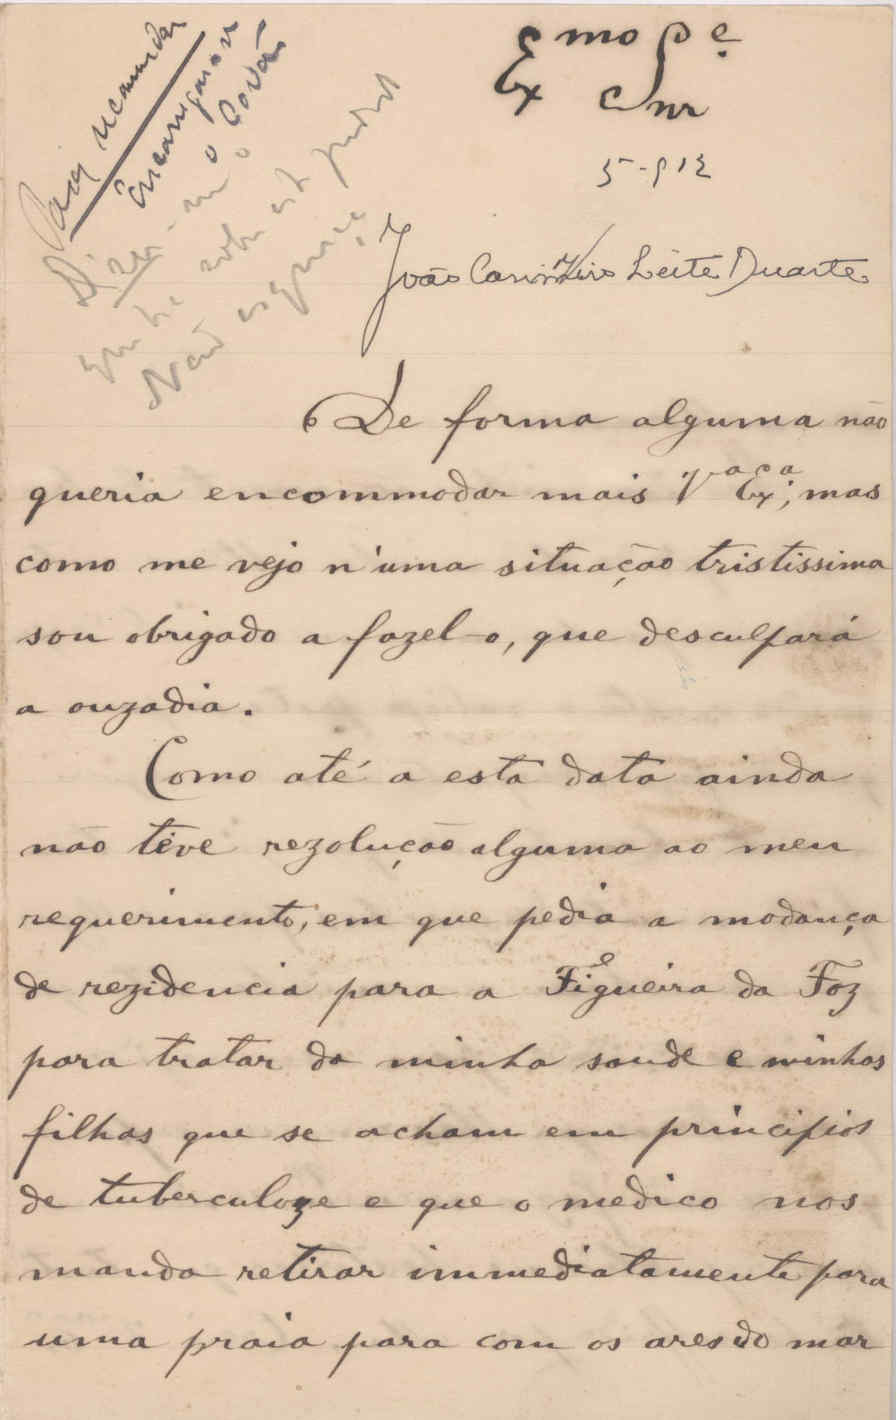 Para recomendar
Encarregaram
o Covão
Dizer-me o
que ha sobre este pedido
Não esquecer
Exmo Snr
5-912
João Leite Duarte
De forma alguma não
queria encommodar mais Va Exa; mas
como me vejo n'uma situação tristissima
sou obrigado a fazel-o, que desculpará
a ouzadia.
Como até a esta data ainda
não teve rezolução alguma ao meu
requerimento, em que pedia a modança
de rezidencia para a Figueira da Foz
para tratar da minha saude e minhas
filhas que se acham em principios
de tuberculoze e que o medico nos
manda retirar immediatamente para
uma praia para com os ares do mar